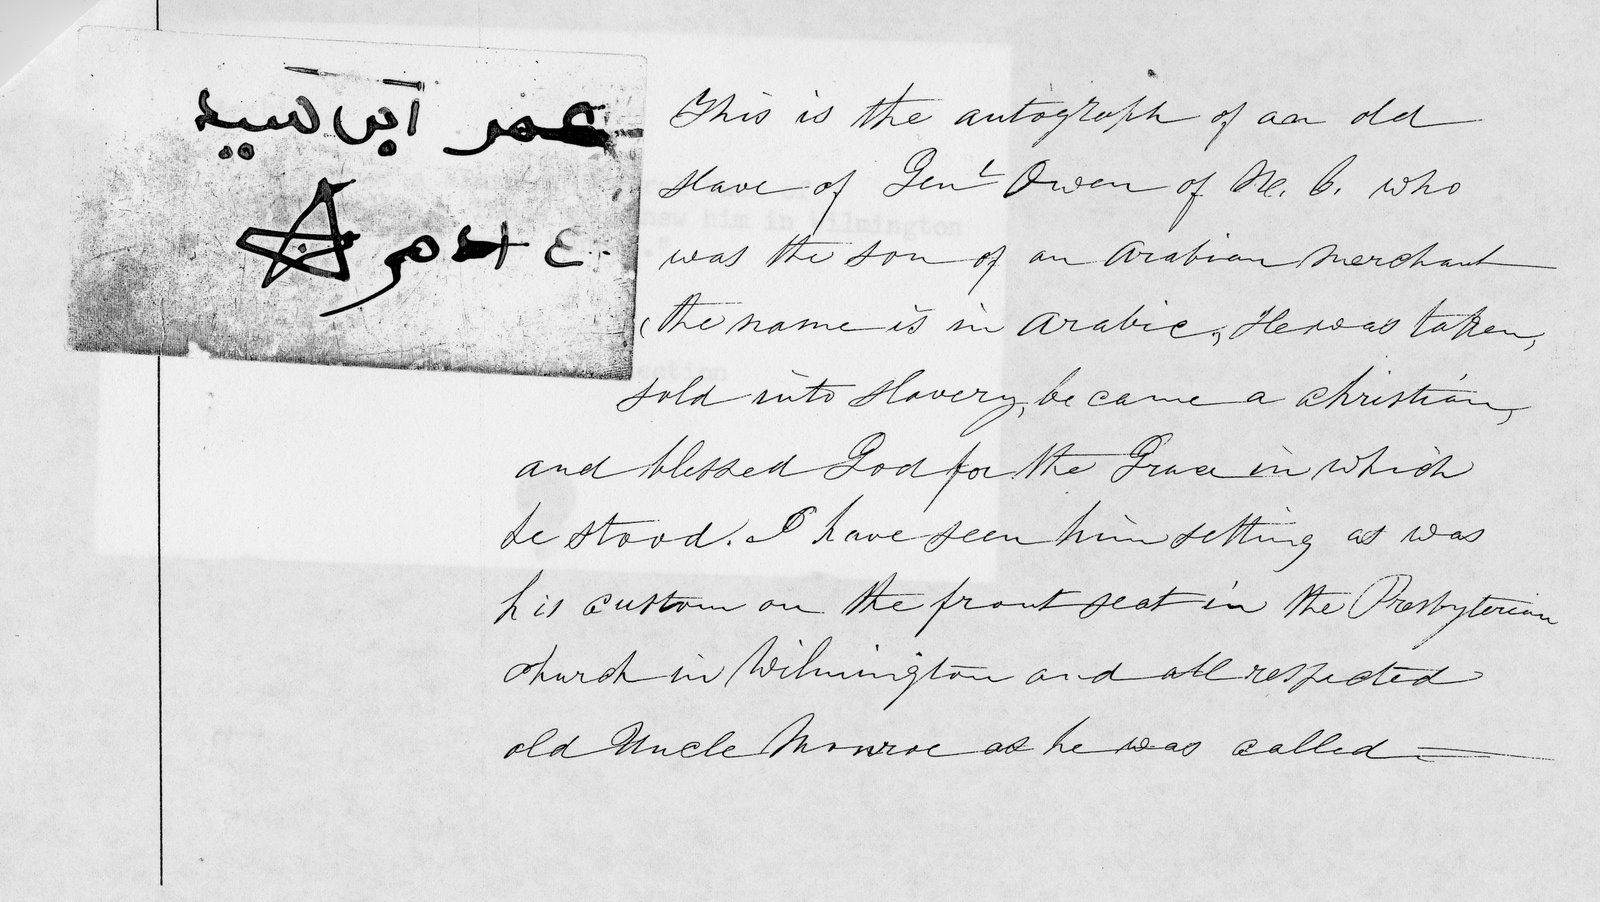 عمر ابن سيد
This is the autograph of an old
slave of Genl Owen of N. C. who
was the son of an Arabian merchant
(the name is in Arabic, He was taken,
sold into slavery, became a christian,
and blessed God for the Grace in which
he stood. I have seen him setting as was
his custom on the front seat in the Presbyterian
church in Wilmington and all respected
old Uncle Monroe as he was called
new him in Wilmington